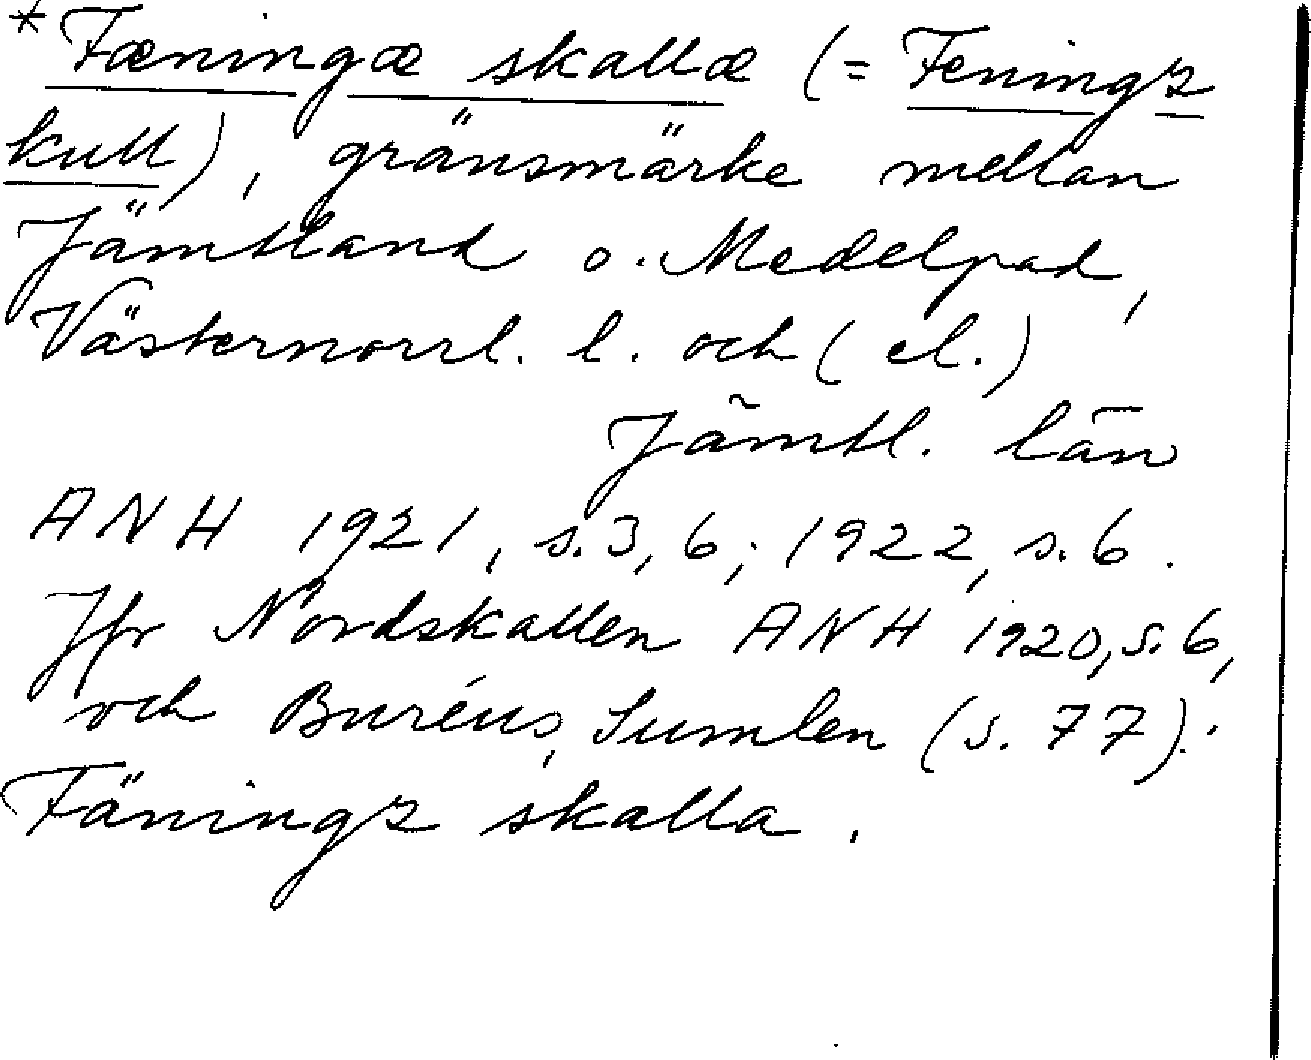 *Fæningæ skallæ (= Feningz
kull), gränsmärke mellan
Jämtland o. Medelpad,
Västernorrl. l. och (el.)
Jämtl. län
ANH 1921, s. 3, 6; 1922, s. 6.
Jfr Nordskallen ANH 1920, s. 6,
och Buréus, Sumlen (s. 77):
Fäningz skalla.